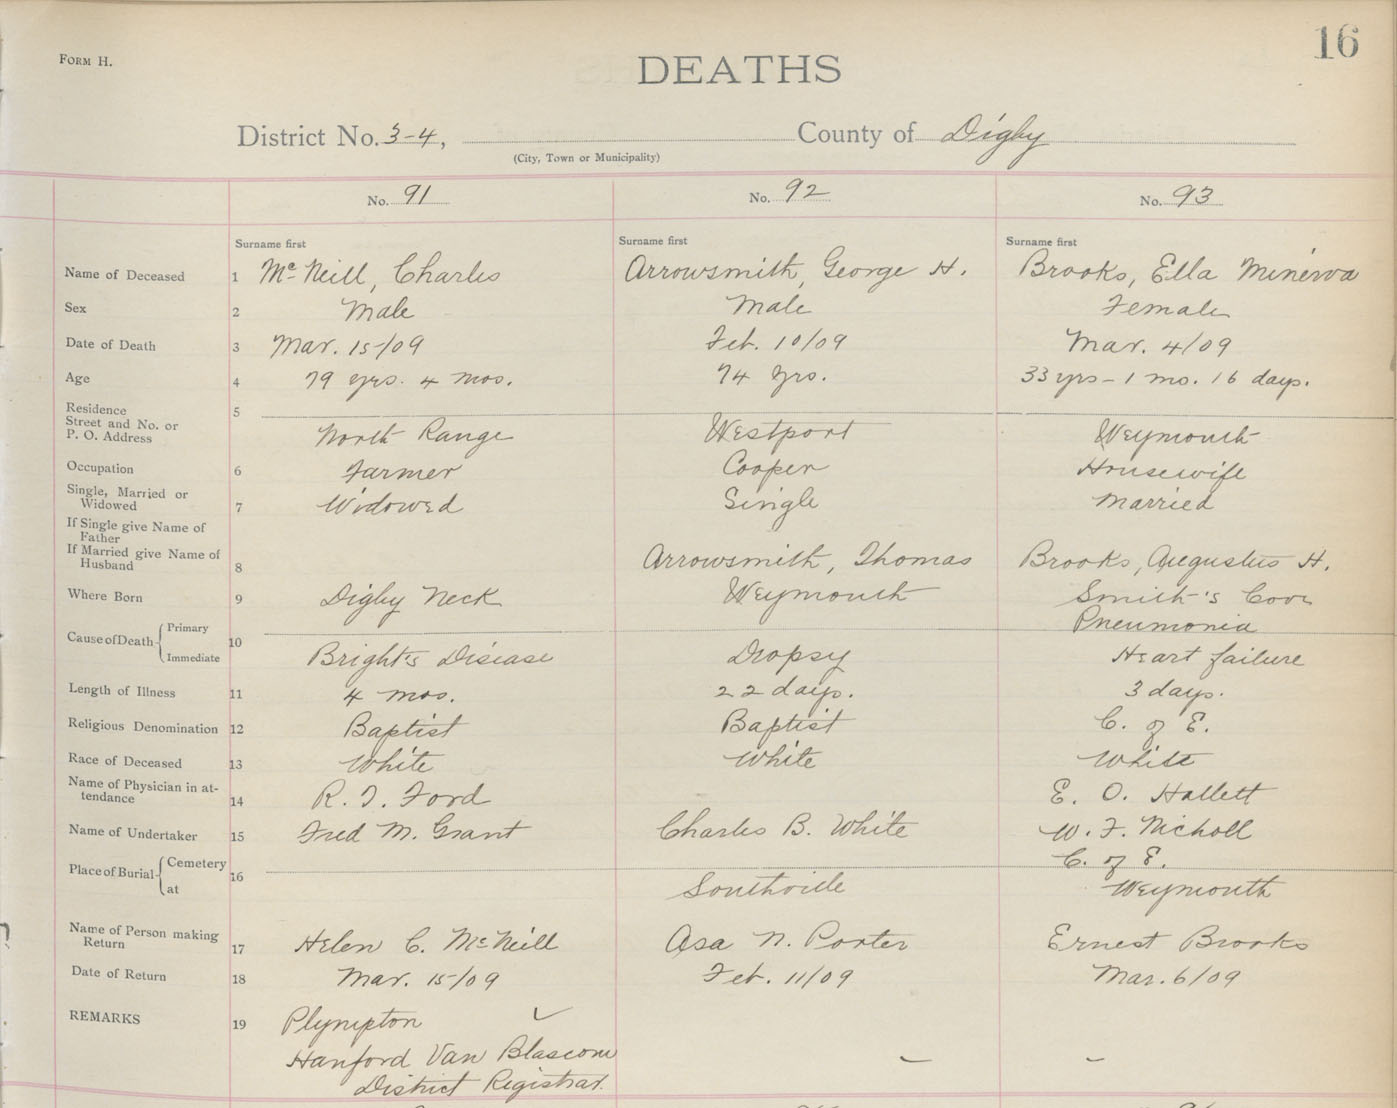 16
FORM H.
DEATHS
District No. 3-4, County of Digby
(City, Town or Municipality)
No. 91 No. 92 No. 93
Surname first Surname first Surname first
Name of Deceased 1 McNeill, Charles Arrowsmith, George H. Brooks, Ella Minerva
Sex 2 Male Male Female
Date of Death 3 Mar. 15/09 Feb. 10/09 Mar. 4/09
Age 4 79 yrs. 4 mos. 74 yrs. 33 yrs - 1 mo. 16 days.
Residence 5
Street and No. or
P. O. Address North Range Westport Weymouth
Occupation 6 Farmer Cooper Housewife
Single, Married or
Widowed 7 Widowed Single Married
If Single give Name of
Father
If Married give Name of
Husband 8 Arrowsmith, Thomas Brooks, Augustus H.
Where Born 9 Digby Neck Weymouth Smith's Cove
Cause of Death 10 Primary Pneumonia
Immediate Bright's Disease Dropsy Heart failure
Length of Illness 11 4 mos. 22 days. 3 days.
Religious Denomination 12 Baptist Baptist C. of E.
Race of Deceased 13 White White White
Name of Physician in at-
tendance 14 R. J. Ford E. O. Hallett
Name of Undertaker 15 Fred M. Grant Charles B. White W. F. Nicholl
Place of Burial 16 Cemetery C. of E.
at Southville Weymouth
Name of Person making
Return 17 Helen C. McNeill Asa N. Porter Ernest Brooks
Date of Return 18 Mar. 15/09 Feb. 11/09 Mar. 6/09
REMARKS 19 Plympton
Hanford Van Blascom
District Registrar.